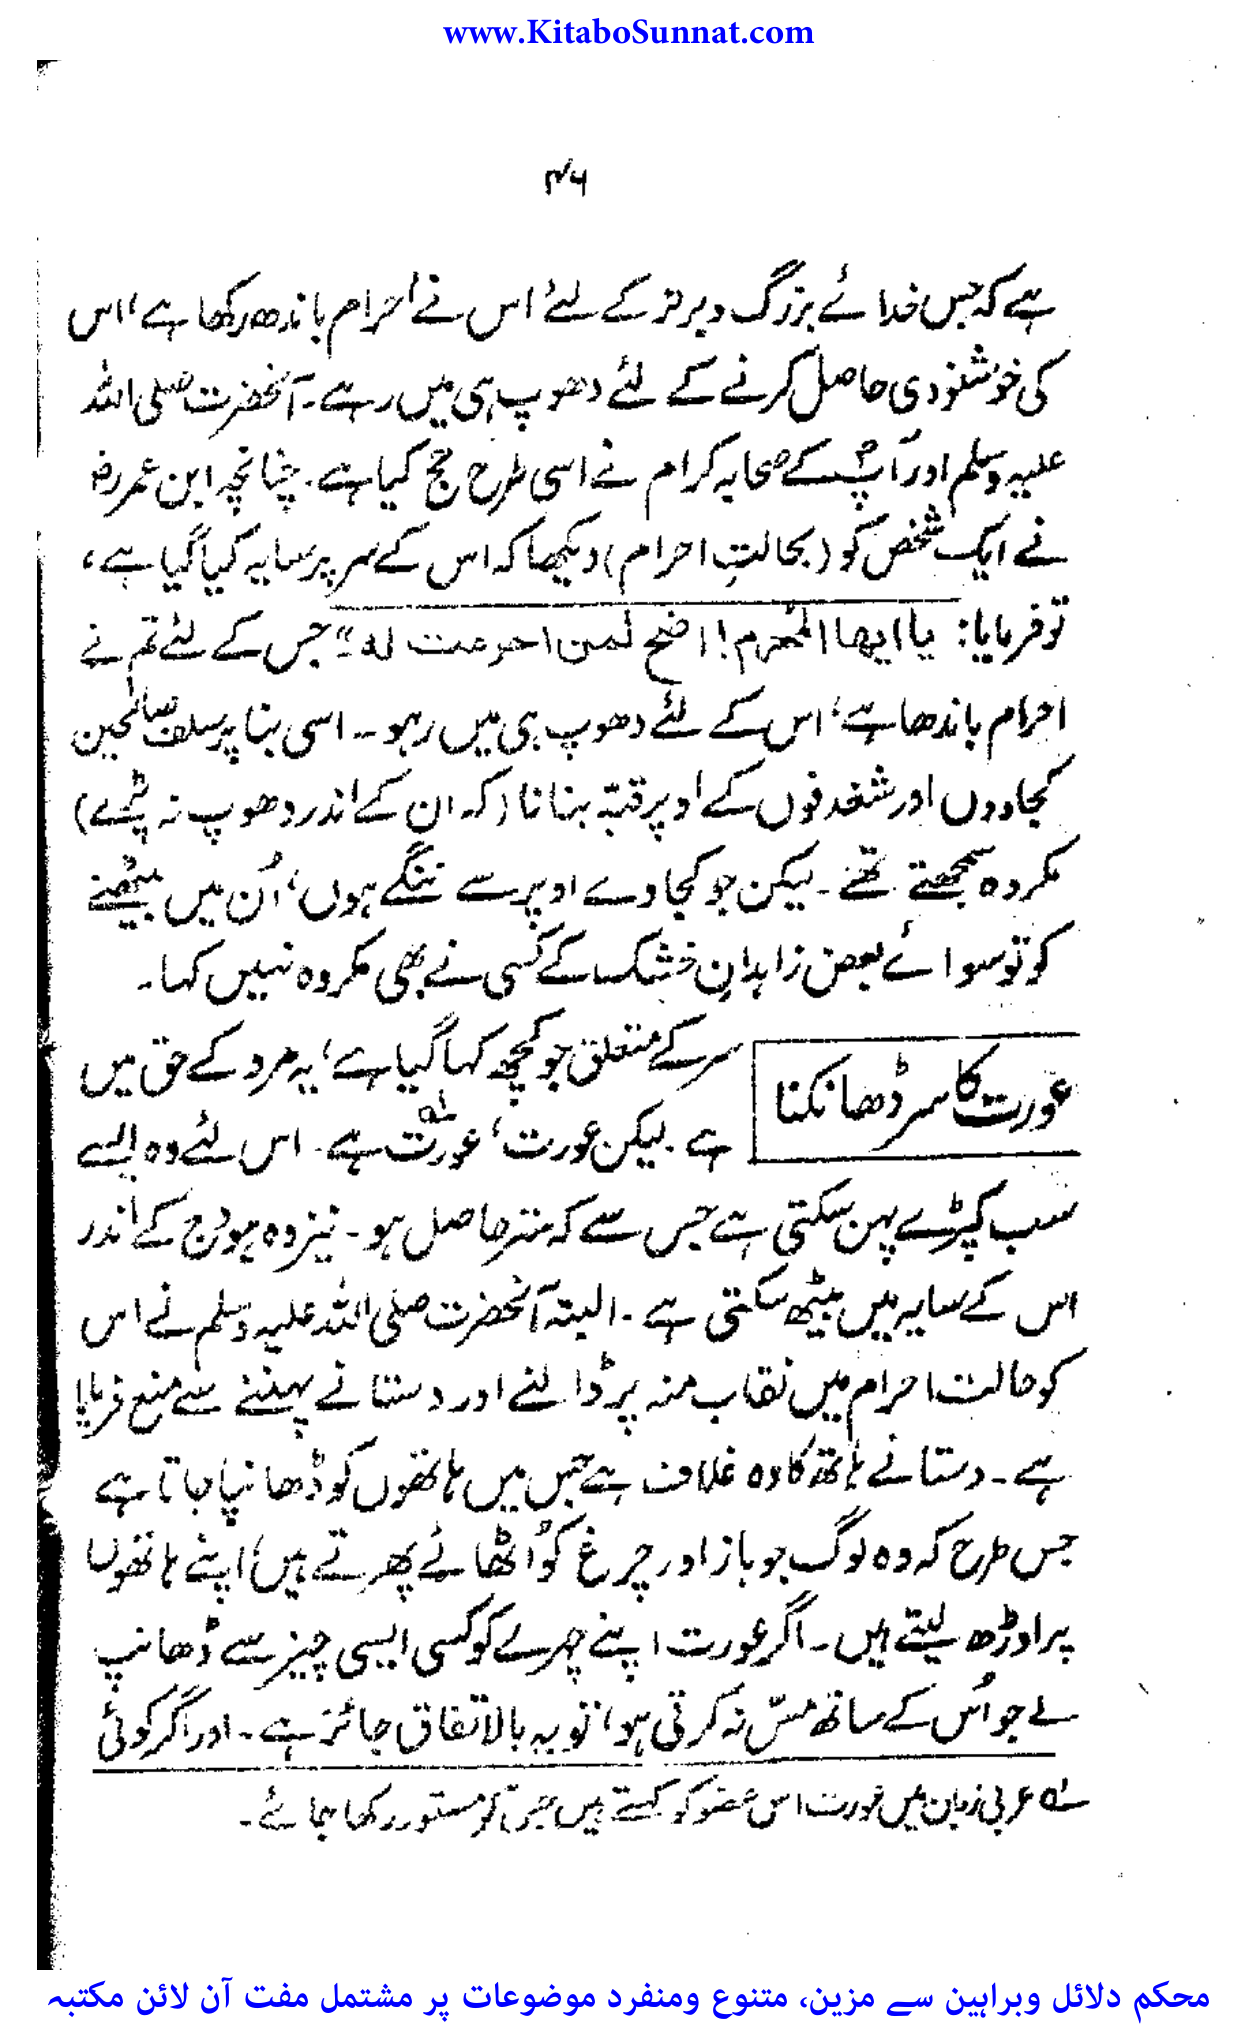 www.KitaboSunnat.com
۴۶
ہے کہ جس خدائے بزرگ و برتر کے لئے اس نے احرام باندھ رکھا ہے، اس
کی خوشنودی حاصل کرنے کے لئے دھوپ ہی میں رہے۔ آنحضرت صلی اللہ
علیہ وسلم اور آپؐ کے صحابہ کرام نے اسی طرح حج کیا ہے۔ چنانچہ ابن عمرؓ
نے ایک شخص کو (بحالتِ احرام) دیکھا کہ اس کے سر پر سایہ کیا گیا ہے،
تو فرمایا: یا ایھا المُحرم! اضح لمن احرمت لہ" جس کے لئے تم نے
احرام باندھا ہے، اس کے لئے دھوپ ہی میں رہو۔ اسی بنا پر سلف صالحین
کجاووں اور شغدفوں کے اوپر قبّہ بنانا (کہ ان کے اندر دھوپ نہ پڑے)
مکروہ سمجھتے تھے۔ لیکن جو کجاوے اوپر سے ننگے ہوں، اُن میں بیٹھنے
کو تو سوائے بعض زاہدانِ خشک کے کسی نے بھی مکروہ نہیں کہا۔
عورت کا سر ڈھانکنا
سر کے متعلق جو کچھ کہا گیا ہے، یہ مرد کے حق میں
ہے۔ لیکن عورت، عورت لہ ہے۔ اس لئے وہ ایسے
سب کپڑے پہن سکتی ہے جس سے کہ ستر حاصل ہو۔ نیز وہ ہودج کے اندر
اس کے سایہ میں بیٹھ سکتی ہے۔ البتہ آنحضرت صلی اللہ علیہ وسلم نے اس
کو حالت احرام میں نقاب منہ پر ڈالنے اور دستانے پہننے سے منع فرمایا
ہے۔ دستانے ہاتھ کا وہ غلاف ہے جس میں ہاتھوں کو ڈھانپا جاتا ہے
جس طرح کہ وہ لوگ جو باز اور چرغ کو اُٹھائے پھرتے ہیں، اپنے ہاتھوں
پر اوڑھ لیتے ہیں۔ اگر عورت اپنے چہرے کو کسی ایسی چیز سے ڈھانپ
لے جو اُس کے ساتھ مسّ نہ کرتی ہو، تو یہ بالاتفاق جائز ہے۔ اور اگر کوئی
لہ عربی زبان میں عورت اس عضو کو کہتے ہیں جس کو مستور رکھا جائے۔
محکم دلائل وبراہین سے مزین، متنوع ومنفرد موضوعات پر مشتمل مفت آن لائن مکتبہ